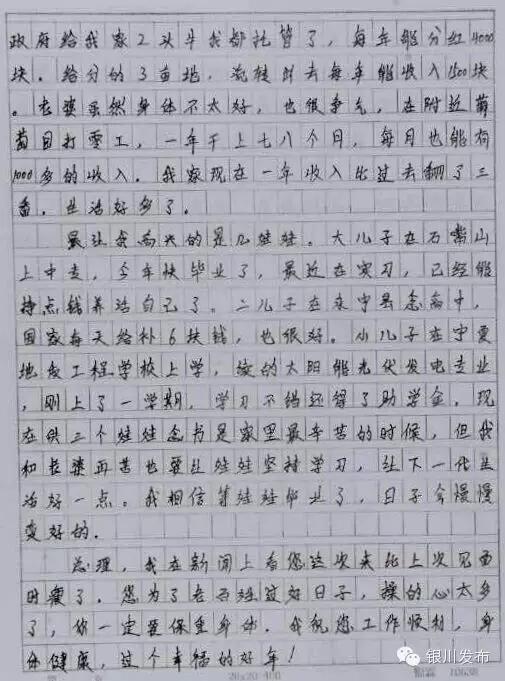 政府给我家2头牛我都托管了，每年能分红4000
块。给分的3亩地，流转出去每年能收入1500块
。老婆虽然身体不太好，也很争气，在附近葡
萄园打零工，一年干上七八个月，每月也能有
1000多的收入。我家现在一年收入比过去翻了三
番，生活好多了。
最让我高兴的是几娃娃。大儿子在石嘴山
上中专，今年快毕业了，最近在实习，已经能
挣点钱养活自己了。二儿子在永宁县念高中，
国家每天给补6块钱，也很好。小儿子在宁夏
地质工程学校上学，读的太阳能光伏发电专业
，刚上了一学期，学习不错还得了助学金。现
在供三个娃娃念书是家里最辛苦的时候，但我
和老婆再苦也要让娃娃坚持学习，让下一代生
活好一点。我相信等娃娃毕业了，日子会慢慢
变好的。
总理，我在新闻上看您这次来比上次见面
时瘦了。您为了老百姓过好日子，操的心太多
了，你一定要保重身体。我祝您工作顺利，身
体健康，过个幸福的好年！
20×20=400
银川发布